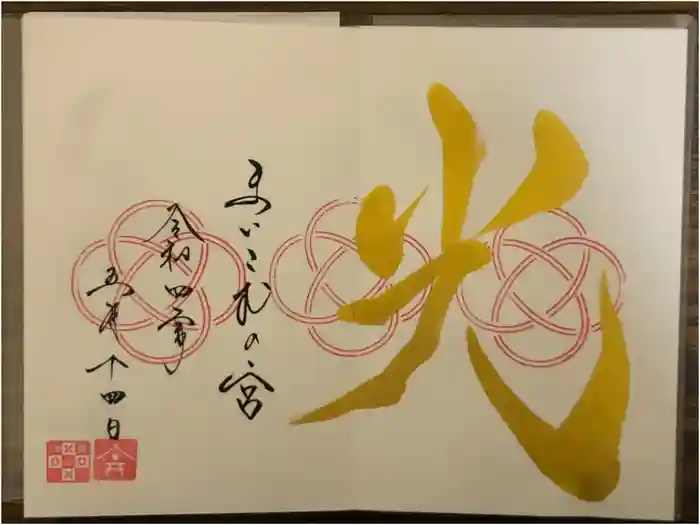 光
まいこむの宮
令和四年
五月十四日